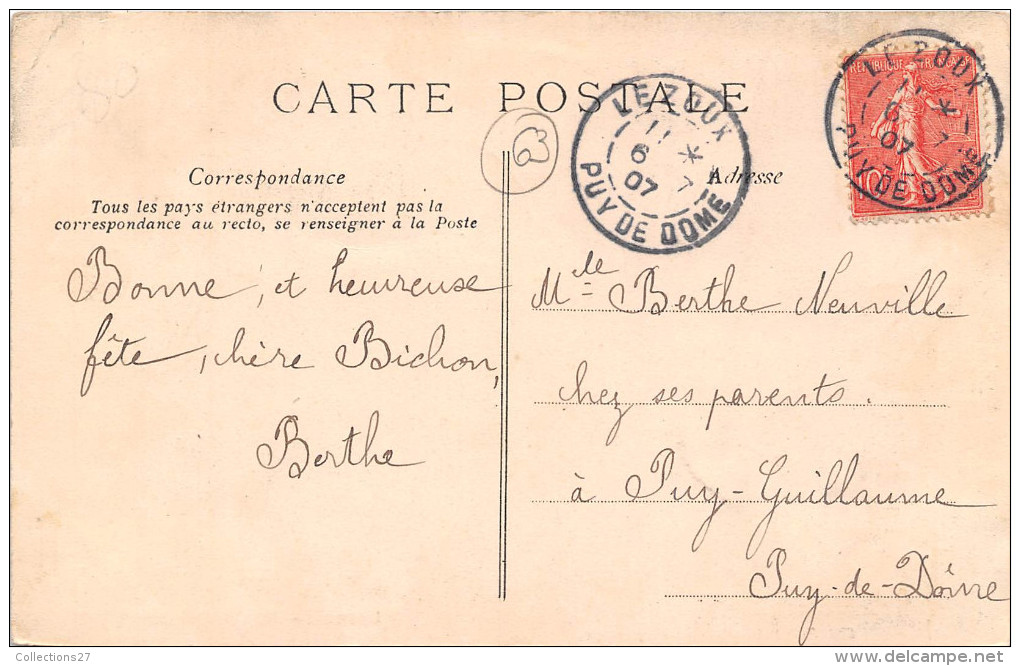 CARTE POSTALE
Correspondance
Tous les pays étrangers n'acceptent pas la
correspondance au recto, se renseigner à la Poste
Bonne, et heureuse
fête, chère Bichon,
Berthe
LEZOUX
11
6 *
07 7
PUY DE DOME
Adresse
REPUBLIQUE FRANÇAISE
10
LEZOUX
11
6 *
07 7
PUY DE DOME
Mlle Berthe Neuville
chez ses parents.
à Puy-Guillaume
Puy-de-Dôme
Collections27
delcampe.net